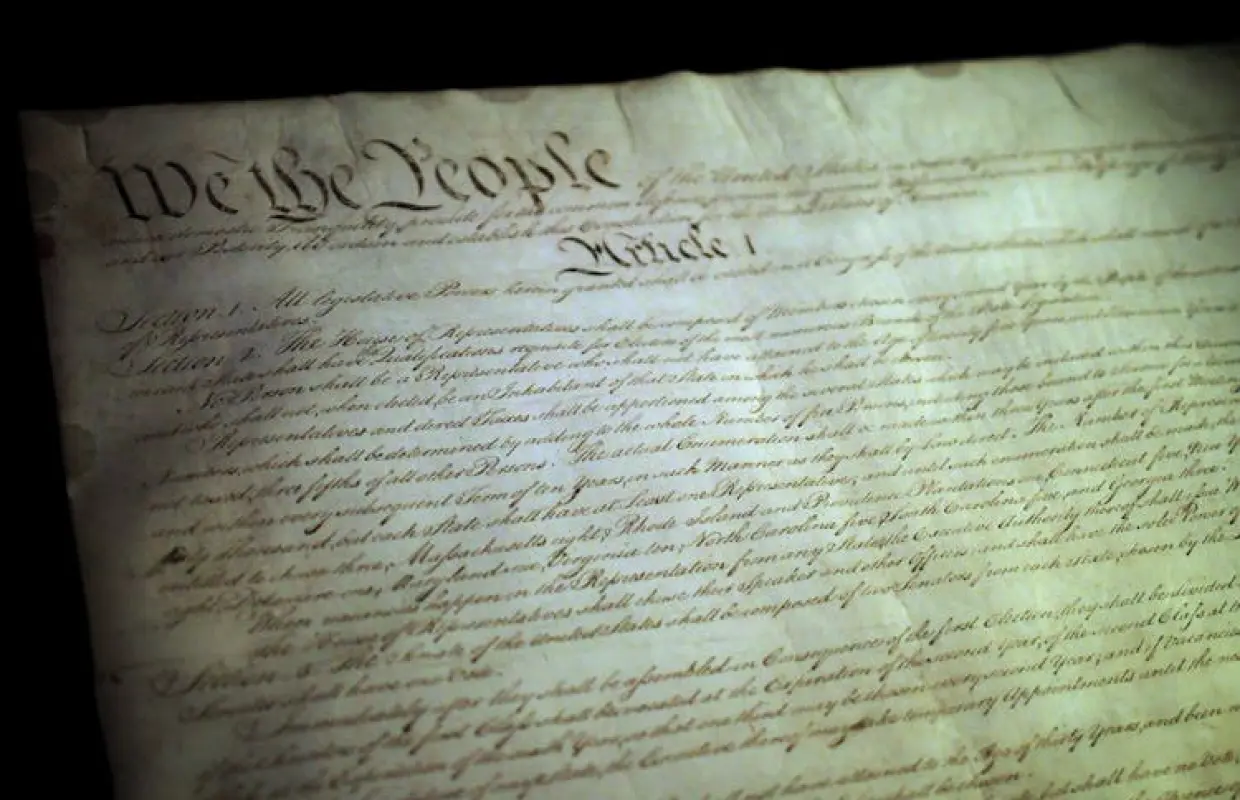 We the People of the United States
insure domestic Tranquility, provide for the common
and our Posterity, do ordain and establish this Constitution for the United States of America.
Article I
Section 1. All legislative Powers herein granted shall be vested in a Congress of the United States
of Representatives.
Section 2. The House of Representatives shall be composed of Members chosen every second Year by the People of the several
in each State shall have Qualifications requisite for Electors of the most numerous Branch of the State Legislature.
No Person shall be a Representative who shall not have attained to the Age of twenty five Years
and who shall not, when elected, be an Inhabitant of that State in which he shall be chosen.
Representatives and direct Taxes shall be apportioned among the several States which may be included within this
Numbers, which shall be determined by adding to the whole Number of free Persons, including those bound to Service for
not taxed, three fifths of all other Persons. The actual Enumeration shall be made within three Years after the first
and within every subsequent Term of ten Years, in such Manner as they shall by Law direct. The Number of
thousand, but each State shall have at Least one Representative; and until such enumeration shall be made, the
entitled to chuse three, Massachusetts eight, Rhode Island and Providence Plantations one, Connecticut five, New
eight, Delaware one, Maryland six, Virginia ten, North Carolina five, South Carolina five, and Georgia three.
When vacancies happen in the Representation from any State, the Executive Authority thereof shall
The House of Representatives shall chuse their Speaker and other Officers; and shall have the sole Power of
Section 3. The Senate of the United States shall be composed of two Senators from each State, chosen by the
Senator shall have one Vote.
Immediately after they shall be assembled in Consequence of the first Election, they shall be divided
of the first Class shall be vacated at the Expiration of the second Year, of the second Class at
Expiration of the sixth Year, so that one third may be chosen every second Year; and if Vacancies
of any State, the Executive thereof may make temporary Appointments until the
not have attained to the Age of thirty Years, and been
shall be chosen.
shall have no Vote,